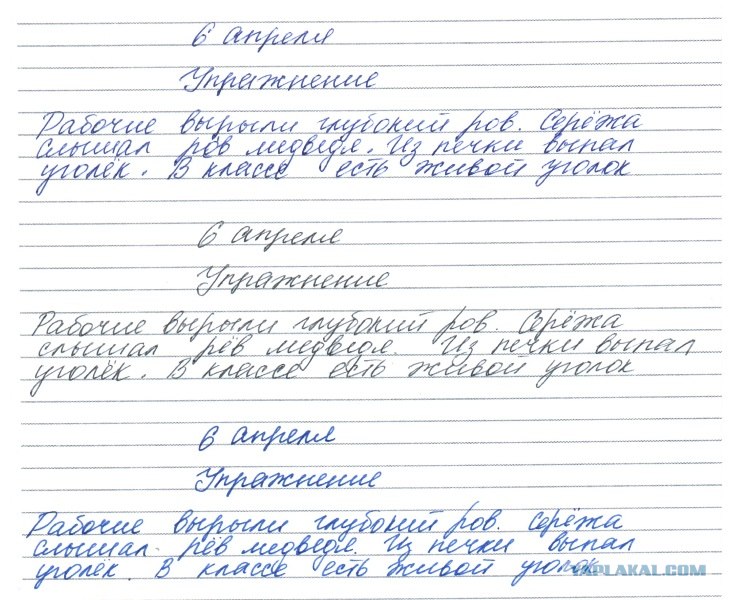 6 апреля
Упражнение
Рабочие вырыли глубокий ров. Серёжа
слышал рёв медведя. Из печки выпал
уголёк. В классе есть живой уголок
6 апреля
Упражнение
Рабочие вырыли глубокий ров. Серёжа
слышал рёв медведя. Из печки выпал
уголёк. В классе есть живой уголок
6 апреля
Упражнение
Рабочие вырыли глубокий ров. Серёжа
слышал рёв медведя. Из печки выпал
уголёк. В классе есть живой уголок
YAPLAKAL.COM